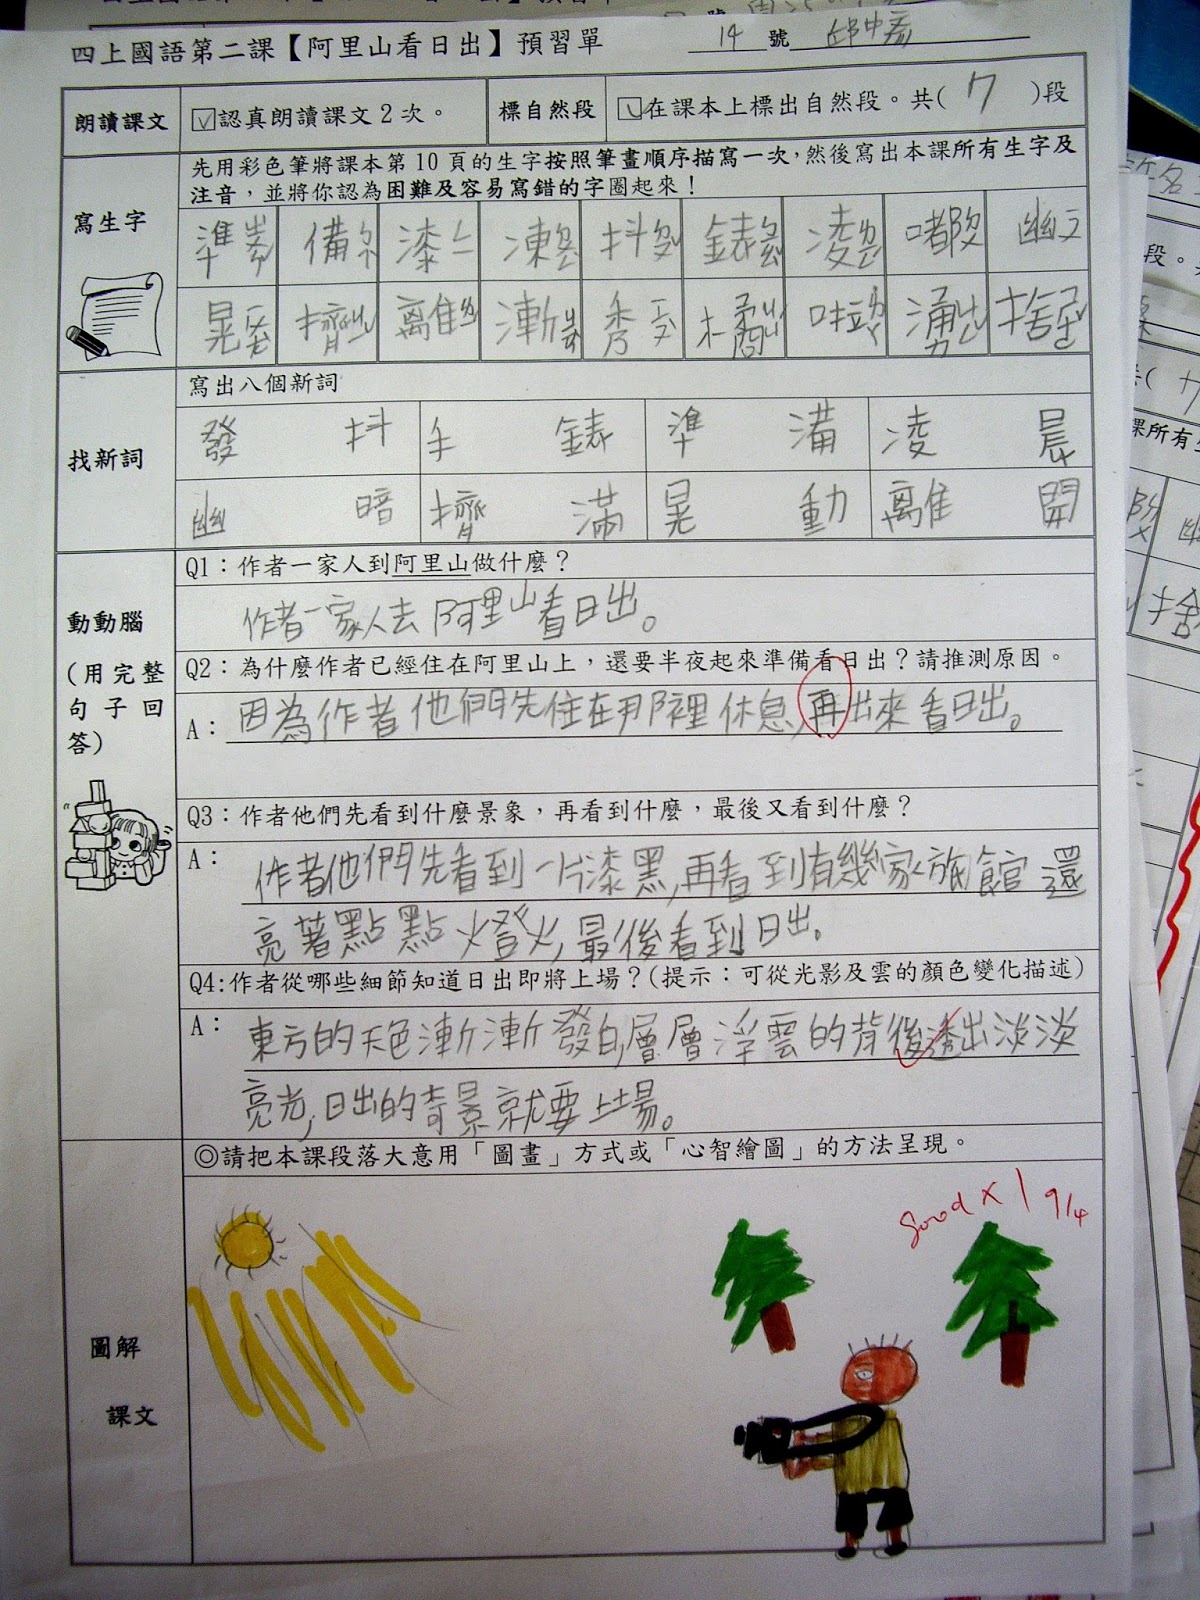 四上國語第二課【阿里山看日出】預習單 14 號
朗讀課文 ☑認真朗讀課文2次。 標自然段 ☑在課本上標出自然段。共( 7 )段
寫生字
先用彩色筆將課本第10頁的生字按照筆畫順序描寫一次,然後寫出本課所有生字及
注音,並將你認為困難及容易寫錯的字圈起來!
準 備 漆 凍 抖 錶 凌 嘟 幽
晃 擠 離 漸 秀 橘 啦 湧 捨
找新詞
寫出八個新詞
發抖 手錶 準備 凌晨
幽暗 擠滿 晃動 離開
動動腦
(用完整句子回答)
Q1:作者一家人到阿里山做什麼?
作者一家人去阿里山看日出。
Q2:為什麼作者已經住在阿里山上,還要半夜起來準備看日出?請推測原因。
A: 因為作者他們先住在那裡休息,再出來看日出。
Q3:作者他們先看到什麼景象,再看到什麼,最後又看到什麼?
A: 作者他們先看到一片漆黑,再看到有幾家旅館還
亮著點點燈火,最後看到日出。
Q4:作者從哪些細節知道日出即將上場?(提示:可從光影及雲的顏色變化描述)
A: 東方的天色漸漸發白,層層浮雲的背後透出淡淡
亮光,日出的奇景就要上場。
圖解
課文
◎請把本課段落大意用「圖畫」方式或「心智繪圖」的方法呈現。
good x 1 9/4